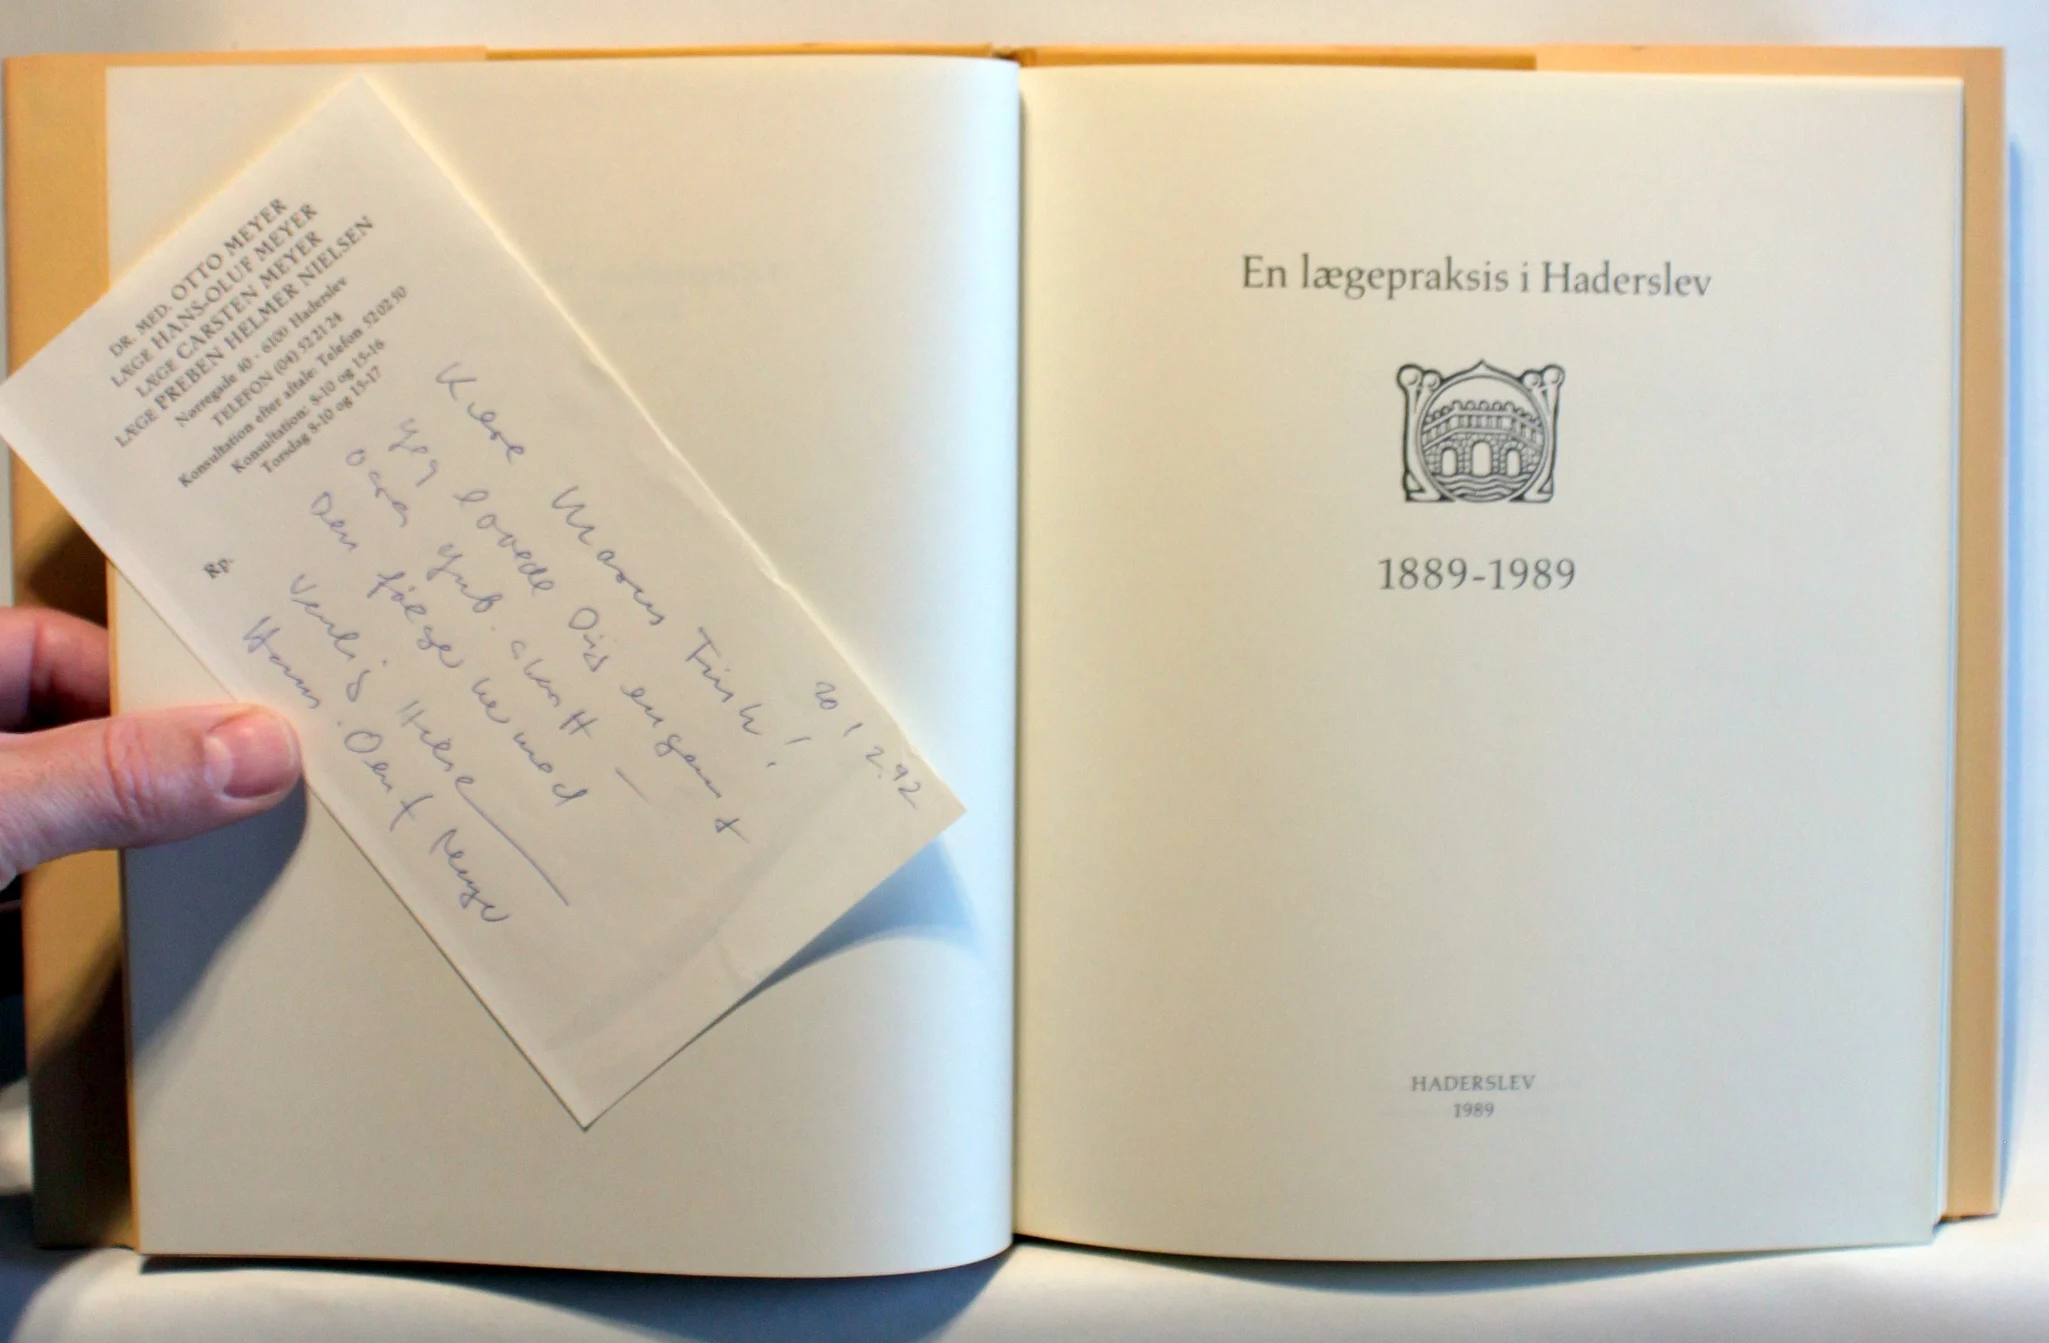 DR. MED. OTTO MEYER
LÆGE HANS-OLUF MEYER
LÆGE CARSTEN MEYER
LÆGE PREBEN HELMER NIELSEN
Nørregade 40 - 6100 Haderslev
TELEFON (04) 52 21 24
Konsultation efter aftale: Telefon 52 02 50
Konsultation: 8-10 og 15-16
Torsdag 8-10 og 15-17
20/2.92
Kære Marcus Frish!
Jeg lovede Dig engang
-
Den følge hermed
Venlig Hilsen
Hans Oluf Meyer
Rp.
En lægepraksis i Haderslev
1889-1989
HADERSLEV
1989